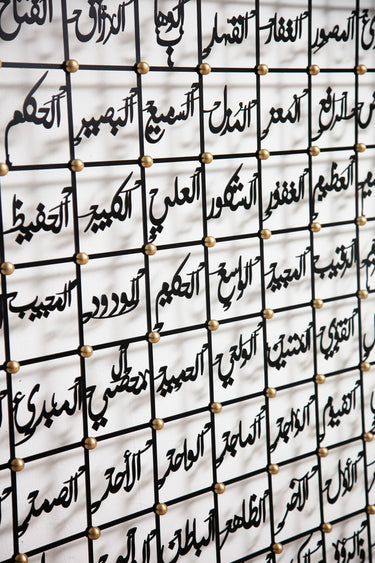 المصور الغفار القهار الوهاب الرزاق الفتاح
الرافع المعز المذل السميع البصير الحكم
العظيم الغفور الشكور العلي الكبير الحفيظ
الرقيب المجيب الواسع الحكيم الودود المجيد
القوي المتين الولي الحميد المحصي المبدئ
القيوم الواجد الماجد الواحد الأحد الصمد
الأول الآخر الظاهر الباطن